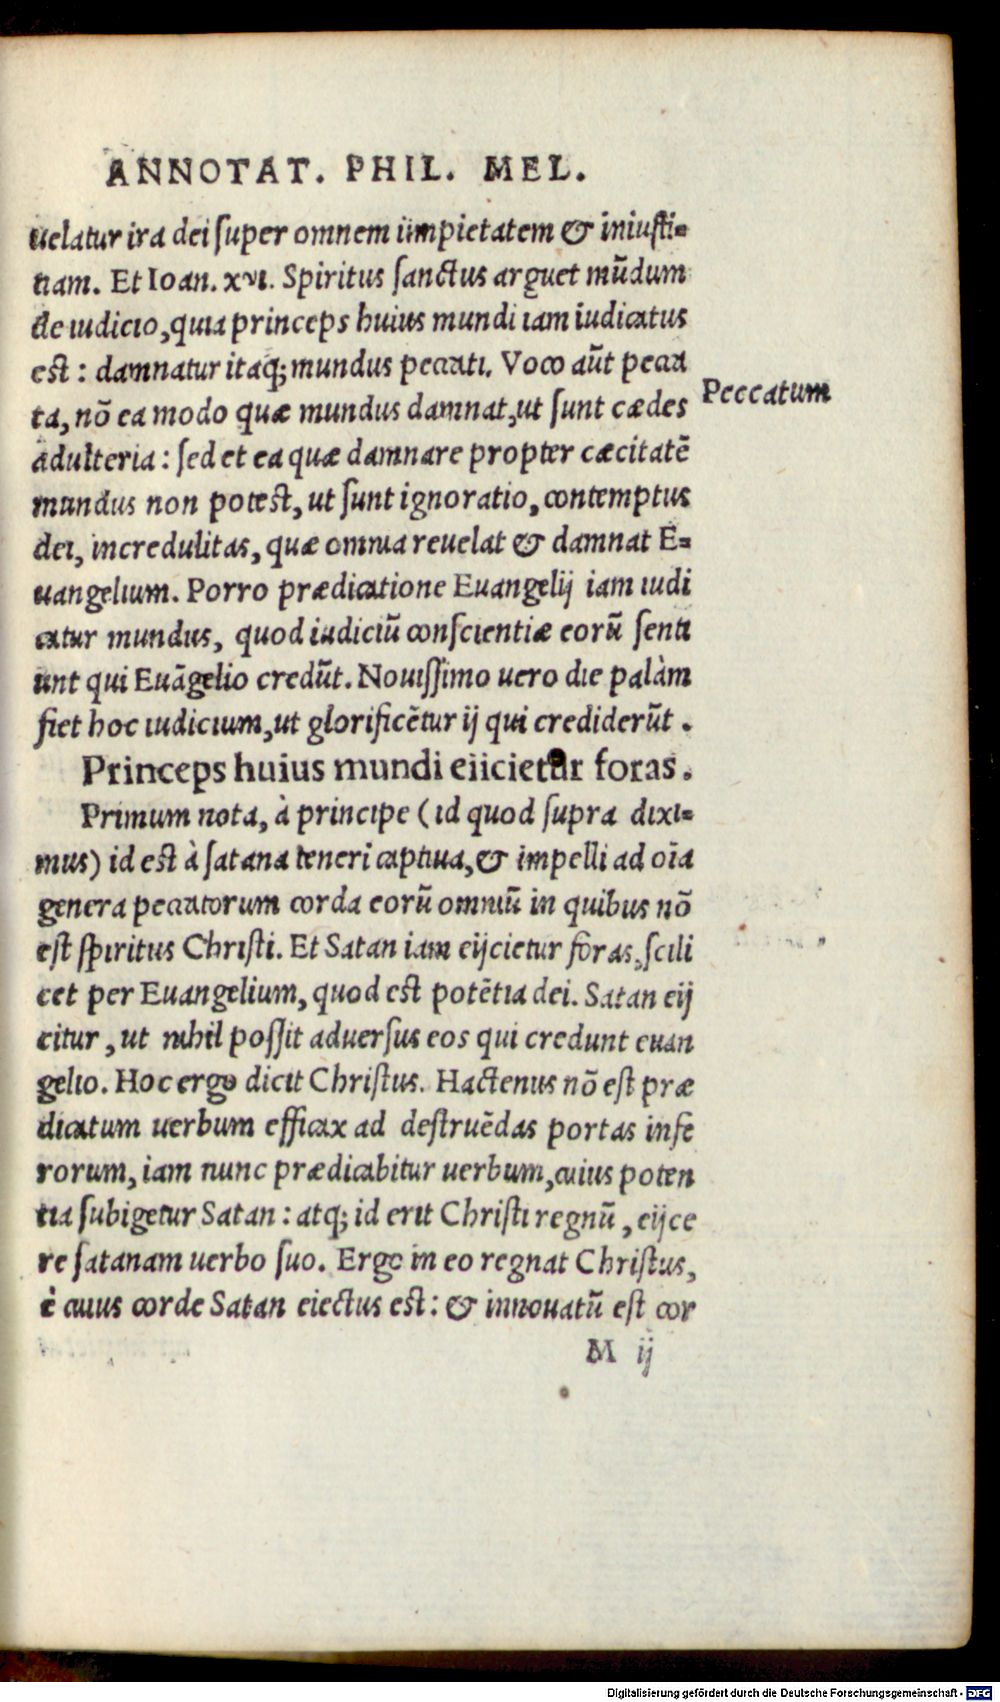 ANNOTAT. PHIL. MEL.
uelatur ira dei super omnem iimpietatem & iniusti=
tiam. Et Ioan. xvi. Spiritus sanctus arguet mũdum
de iudicio, quia princeps huius mundi iam iudicatus
est : damnatur itaq; mundus peccati. Voco aũt pecca
ta, nõ ea modo quæ mundus damnat, ut sunt cædes
Peccatum
adulteria : sed et ea quæ damnare propter cæcitatẽ
mundus non potest, ut sunt ignoratio, contemptus
dei, incredulitas, quæ omnia reuelat & damnat E=
uangelium. Porro prædicatione Euangelij iam iudi
catur mundus, quod iudiciũ conscientiæ eorũ senti
unt qui Euãgelio credũt. Nouissimo uero die palàm
fiet hoc iudicium, ut glorificẽtur ij qui crediderũt .
Princeps huius mundi eiicietur foras.
Primum nota, à principe ( id quod supra dixi=
mus) id est à satana teneri captiua, & impelli ad oĩa
genera peccatorum corda eorũ omniũ in quibus nõ
est spiritus Christi. Et Satan iam eijcietur foras, scili
cet per Euangelium, quod est potẽtia dei. Satan eij
citur , ut nihil possit aduersus eos qui credunt euan
gelio. Hoc ergo dicit Christus. Hactenus nõ est præ
dicatum uerbum efficax ad destruẽdas portas infe
rorum, iam nunc prædicabitur uerbum, cuius poten
tia subigetur Satan : atq; id erit Christi regnũ , eijce
re satanam uerbo suo. Ergo in eo regnat Christus,
è cuius corde Satan eiectus est : & innouatũ est cor
M ij
Digitalisierung gefördert durch die Deutsche Forschungsgemeinschaft - DFG